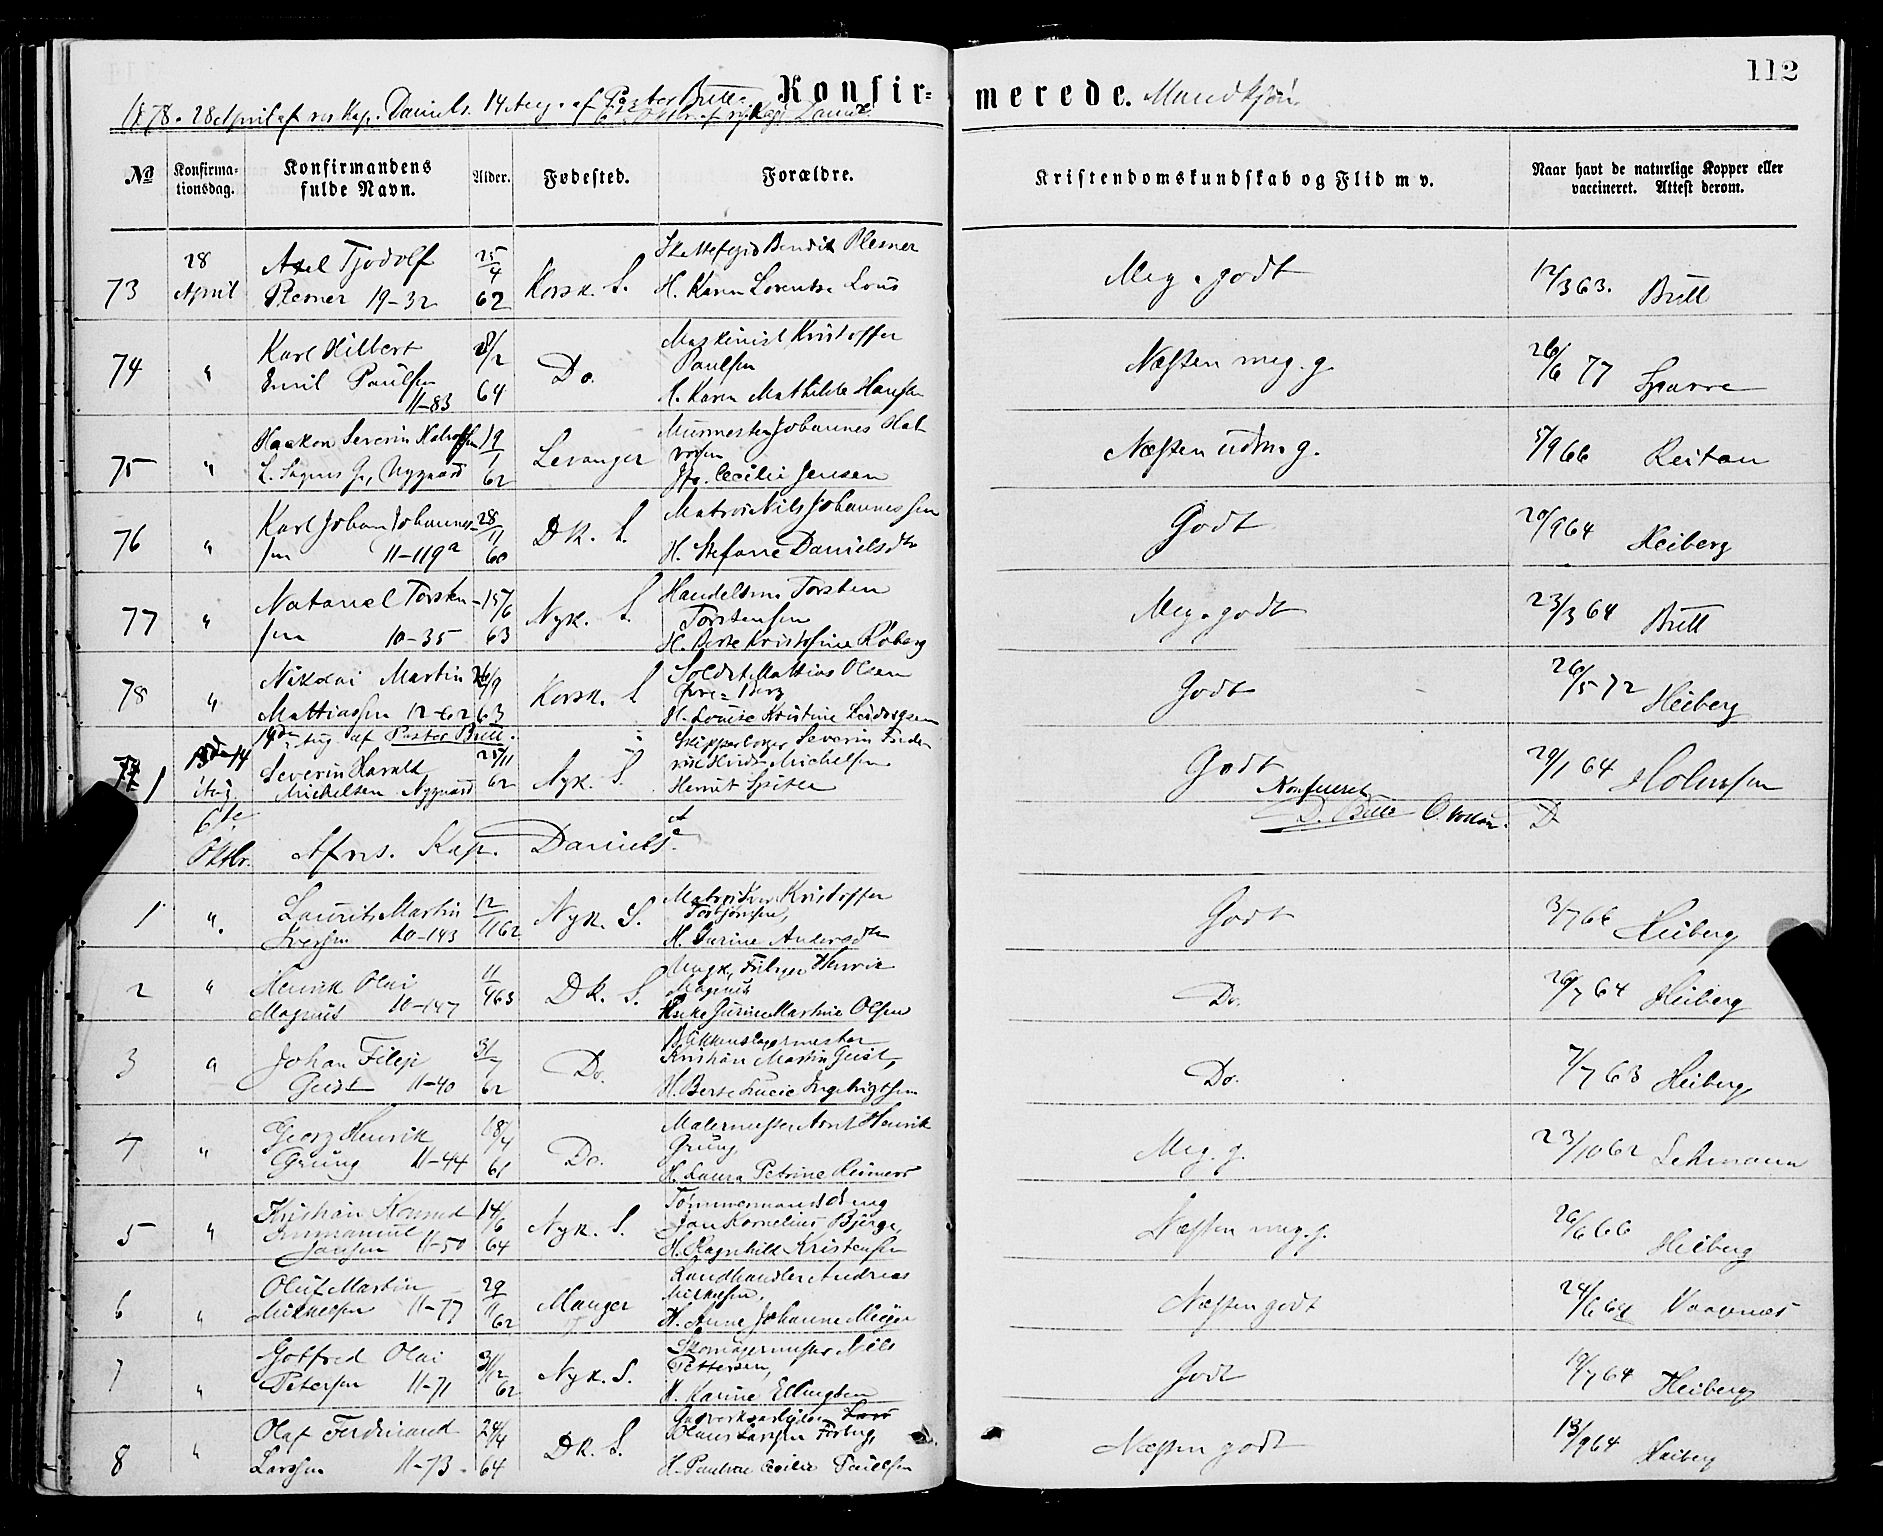 112
Konfir=merede. Mandkjøn.
1878. 28 April af res. Kap. Daniels. 14 Aug. af Pastor Brett.
6te Oktbr. af res. Kap. Daniels
No
Konfirma-
tionsdag.
Konfirmandens
fulde Navn.
Alder.
Fødested.
Forældre.
Kristendomskundskab og Flid m v.
Naar havt de naturlige Kopper eller
vaccineret. Attest derom.
73
28
April
Axel Tjodolf
Plesner 19-32
25/4
62
Korsk. S.
Bendix Plesner
H. Karen Lorentse Lous
Meg. godt
12/3 63. Brett
74
"
Karl Hilbert
Emil Paulsen
11-83
28/2
64
Do.
Maskinist Kristoffer
Paulsen
H. Karen Mathilde Hansen
Næsten meg. g.
26/6 77 Sparre
75
"
Haakon Severin Halvorsen
L. Sagnes G., Nygaard
19/1
62
Levanger
Murmester Johannes Hal
vorsen
Cecilie Jensen
Næsten udm g.
5/9 66 Reitan
76
"
Karl Johan Johannes-
sen 11-119a
28/11
60
D K. S.
Matros Nils Johannessen
H. Stefane Danielsdtr
Godt
20/9 64 Heiberg
77
"
Natanael Torsten-
sen 10-35
15/6
63
Nyk. S.
Handelsm. Torsten
Torstensen
H. Berte Kristofine Roberg
Meg. godt
23/3 64 Brett
78
"
Nikolai Martin
Mattiassen 12-62
26/9
63
Korsk. S
Soldat Mattias Olsen
H. Louise Kristine
Godt
26/5 72 Heiberg
14de Aug. af Pastor Brett.
1
14
Aug.
Severin Harald
Mickelsen Nygaard
25/11
62
Nyk. S.
Skipperborger Severin Frede
rik Michelsen
Godt
29/1 64 Holmsen
Konfereret
D. Brett
6te
Oktbr.
Af res. Kap. Daniels.
1
".
Laurits Martin
Iversen 10-143
12/11 62
Nyk. S.
Matros Iver Kristoffer
Torbjørnsen,
H. Gurine Andersdtr
Godt
3/7 66 Heiberg
2
"
Henrik Olai
Magnus 11-147
11/4 63
D K. S.
Henrik
Magnus
Gurine Martine Olsen
Do.
26/7 64 Heiberg
3
"
Johan Filip
Geist 11-40
31/7
62
Do.
Blikkenslagermester
Kristian Martin Geist,
H. Berte Lucie Ingebrigtsen
Do.
7/7 63 Heiberg
4
"
Georg Henrik
Grung 11-44
18/4
61
Do.
Malermester Arnt Henrik
Grung
H. Laura Petrine Reimers
Meg. g.
23/10 62 Lehmann
5
"
Kristian Konrad
Emmanuel
Jansen 11-50
14/6
64
Nyk. S.
Tømmermand
Jan Kornelius Bjerge,
H. Ragnhild Kristensen
Næsten meg. g.
26/6 66 Heiberg
6
"
Oluf Martin
Mikkelsen 11-77
29/11
62
Manger
Landhandler Andreas
Mikkelsen,
H. Anne Johanne Meyer
Næsten godt
24/6 64
7
"
Gotfred Olai
Petersen 11-71
31/12
62
Nyk. S.
Skomagermester Nils
Pettersen,
H. Karine Ellingsen
Godt
19/7 64 Heiberg
8
"
Olaf Ferdinand
Larssen 11-73.
24/4
64
D K. S.
Gasverksarbeider
Olaus Larssen
H. Pauline Cecilie Paulsen
Næsten godt
13/9 64 Heiberg